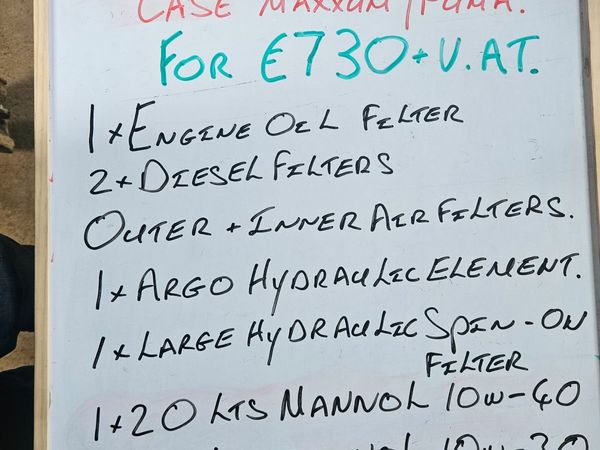 CASE MAXXUM/PUMA.
FOR €730+V.AT.
1 x ENGINE OIL FILTER
2 x DIESEL FILTERS
OUTER + INNER AIR FILTERS.
1 x ARGO HYDRAULIC ELEMENT.
1 x LARGE HYDRAULIC SPIN-ON
FILTER
1 x 20 LTS MANNOL 10W-40
10W-30